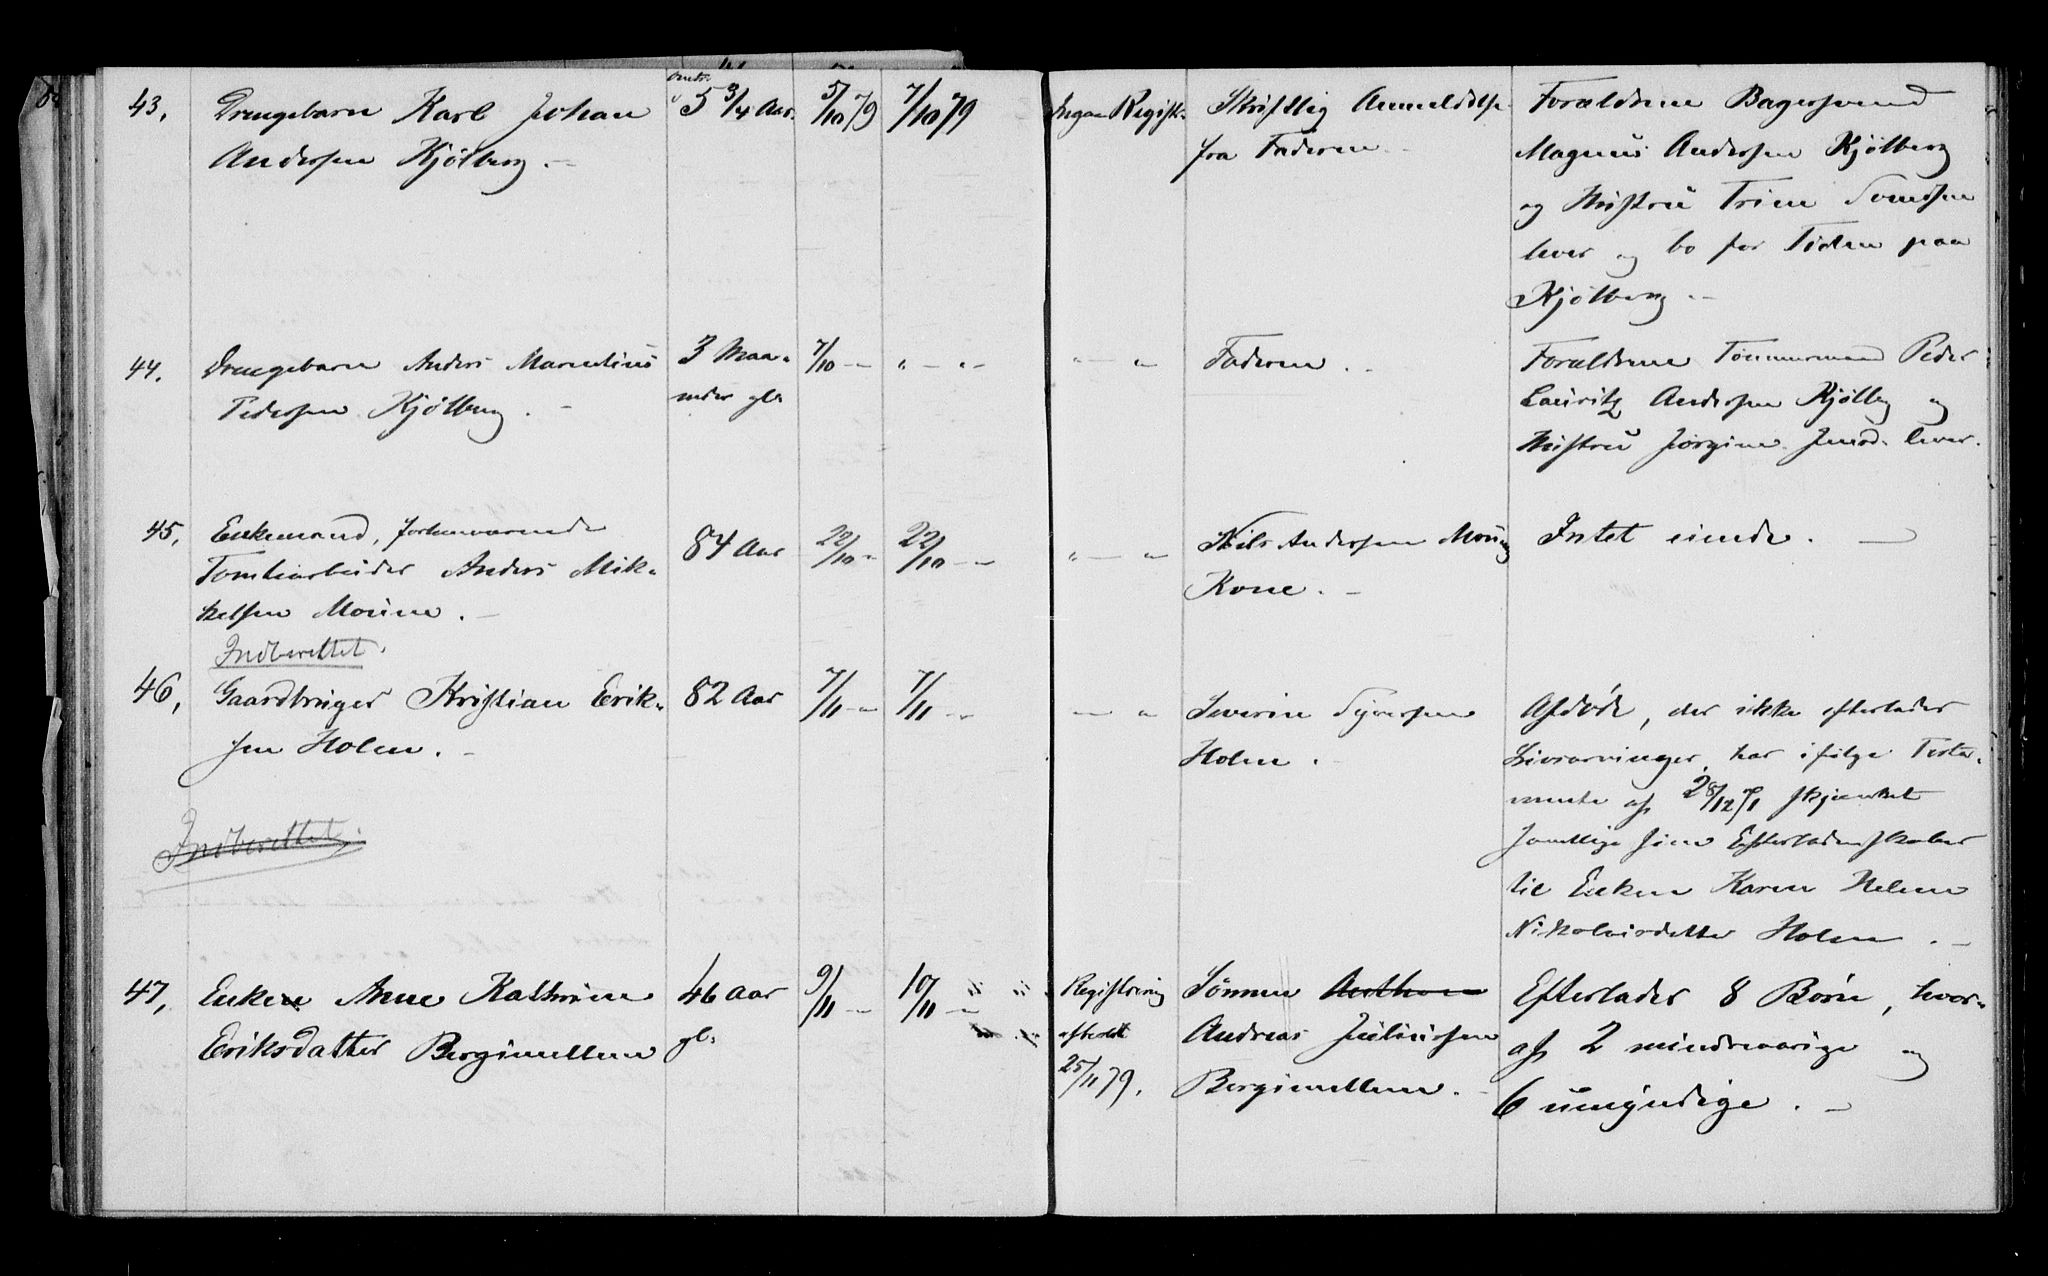 43, Drengebarn Karl Johan omtr. 5 3/4 Aar. 5/10 79 7/10 79 Ingen Registr. Skriftlig Anmeldelse Forældrene Bagersvend
Andersen Kjölberg. - fra Faderen. Magnus Andersen Kjölberg
og Hustru Trine Svendsen
lever og bo for Tiden paa
Kjölberg. -
44, Drengebarn Anders Marentius 3 Maa- 7/10 - " - " - " - " Faderen. - Forældrene Tömmermand Peder
Pedersen Kjölberg. - neder gl. Lauritz Andersen Kjölbg og
Hustru Jörgine Jensd. lever.
45, Enkemand, forhenværende 84 Aar 22/10 - 22/10 - " - " Nils Andersen Moum Intet eiende. -
Tomtearbeider Anders Mik- Kone. -
kelsen Moum. -
Indberettet.
46, Gaardbruger Kristian Erik- 82 Aar 7/11 - 7/11 - - " Severin Syversen Afdöde, der ikke efterlader
sen Holm. - Holm. Livsarvinger, har ifölge Testa-
mente af 28/12 71 skjænket
samtlige sine Efterladenskaber
Indberettet. til Enken Karen Helene
Nikolaisdatter Holm. -
47, Enken Anne Kathrine 46 Aar 9/11 - 10/11 - Registrering Sönnen Anthon Efterlader 8 Börn, hvor-
Eriksdatter Bergimellem gl. afholdt Andreas Juliussen af 2 mindreaarige og
25/11 79. Bergimellem. - 6 umyndige. -